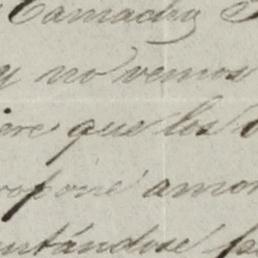 Camacho
y no vemos
ere que los
opone amor
ntándose